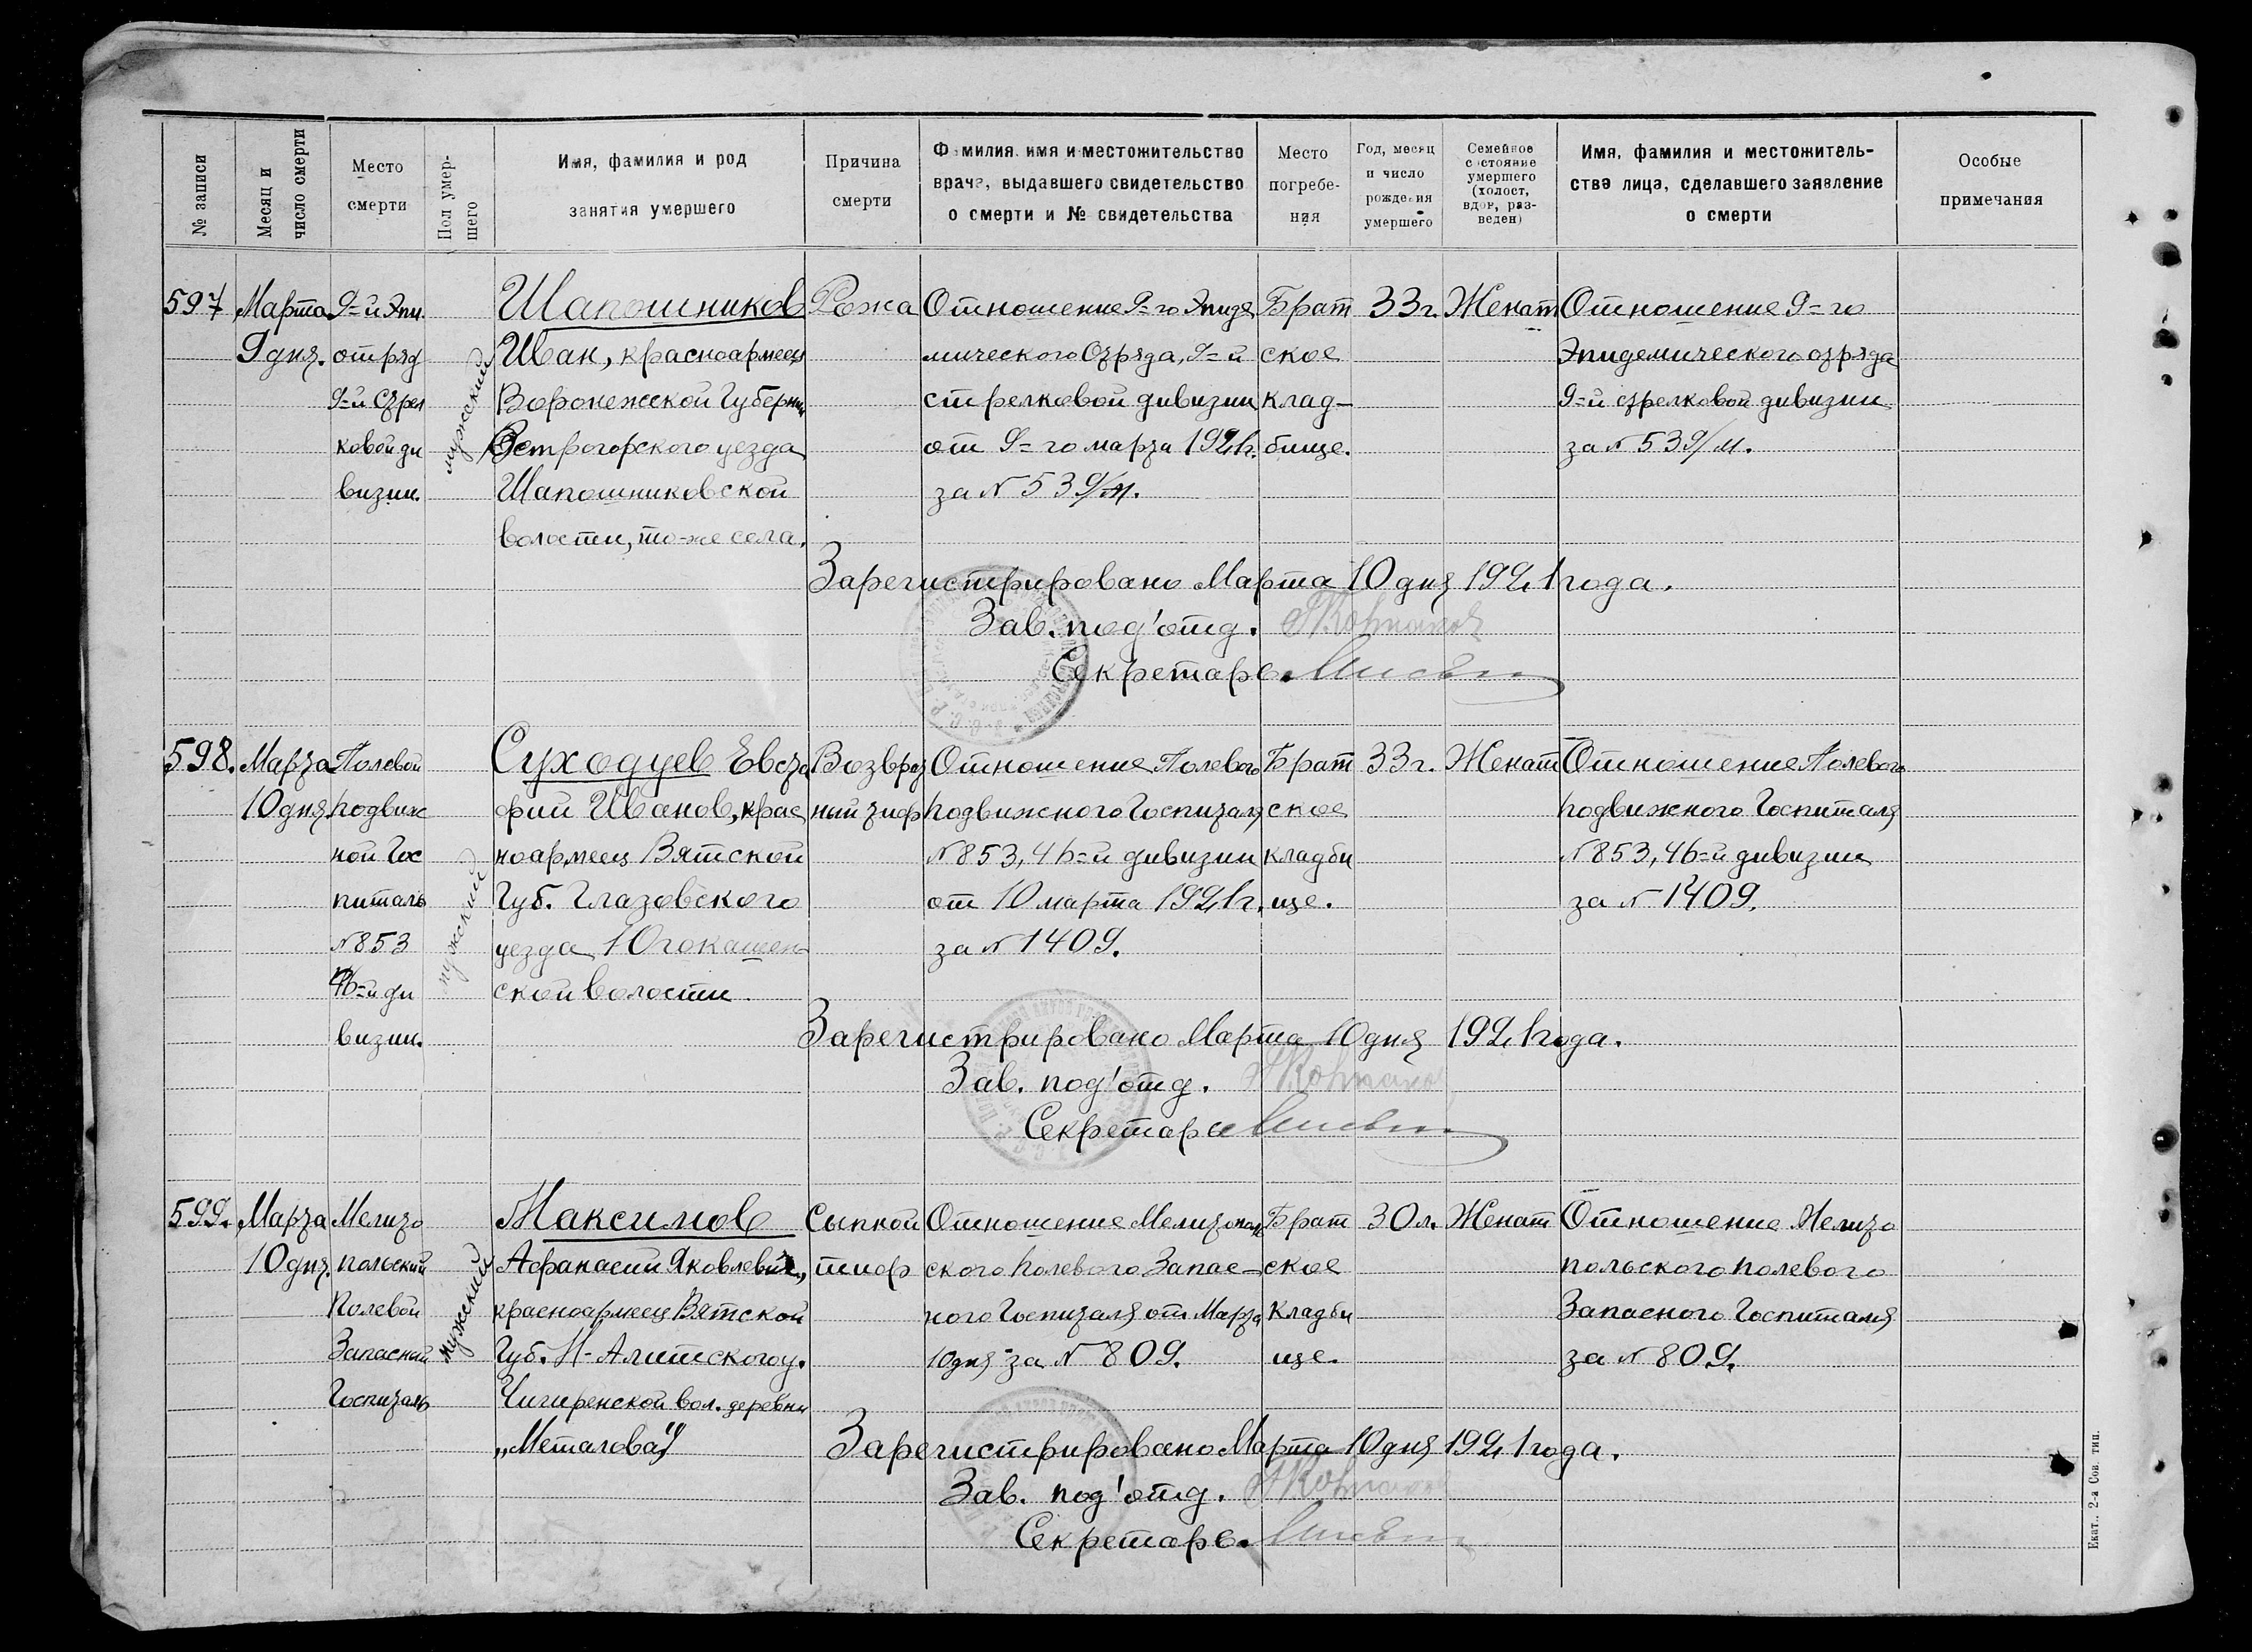 № записи
Месяц и число смерти
Место смерти
Пол умершего
Имя, фамилия и род занятия умершего
Причина смерти
Фамилия имя и местожительство врача, выдавшего свидетельство о смерти и № свидетельства
Место погребения
Год, месяц и число рождения умершего
Семейное состояние умершего (холост, вдов, разведен)
Имя, фамилия и местожительство лица, сделавшего заявление о смерти
Особые примечания
597 Марта 9=й Эпи. Шапошников Рожа Отношение 9=го Эпиде Брат 33г. Женат Отношение 9=го
9 дня. отряд Иван, красноармеец мического Отряда, 9=й ское Эпидемического отряда
9=й Стрел Воронежской Губернии стрелковой дивизии клад- 9=й стрелковой дивизии
ковой ди мужский Острогорского уезда от 9=го марта 1921г. бище. за № 539/м.
визии. Шапошниковской за № 539/м.
волости, то-же села.
Зарегистрировано Марта 10 дня 1921 года.
Зав. под'отд.
Секретарь.
598. Марта Полевой Суходуев Евста Возврат Отношение Полевого Брат 33г. Женат Отношение Полевого
10 дня подвиж фий Иванов, крас ный тиф подвижного Госпиталя ское подвижного Госпиталя
ной Гос ноармеец Вятской №853, 46=й дивизии кладби №853, 46=й дивизии
питаль мужский Губ. Глазовского от 10 марта 1921г. ще. за № 1409.
№853 уезда Югокашен за № 1409.
46=й ди ской волости.
визии.
Зарегистрировано Марта 10 дня 1921 года.
Зав. под'отд.
Секретарь
599. Марта Мелито Максимов Сыпной Отношение Мелитополь Брат 30л. Женат Отношение Мелито
10 дня. польский Афанасий Яковлевич, тиф ского полевого Запас- ское польского полевого
Полевой мужский красноармеец Вятской ного Госпиталя от Марта кладби Запасного Госпиталя
Запасный Губ. Н-Алитского у. 10 дня за № 809. ще. за № 809.
Госпиталь Чигиренской вол. деревни
„Металовай"
Зарегистрировано Марта 10 дня 1921 года.
Зав. под'отд.
Секретарь.
Екат., 2-я Сов. тип.